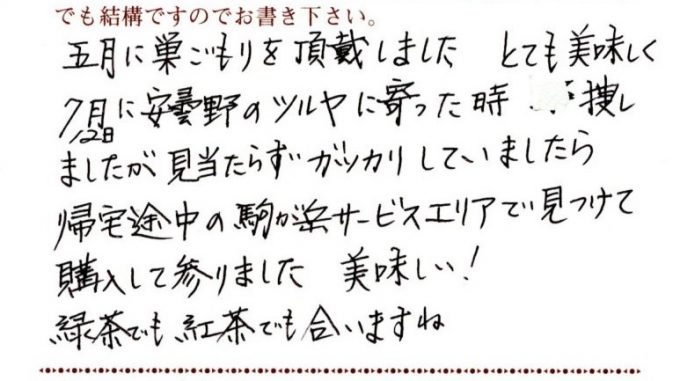 でも結構ですのでお書き下さい。
五月に巣ごもりを頂戴しました とても美味しく
7月に安曇野のツルヤに寄った時 捜し
12日
ましたが見当たらずガッカリしていましたら
帰宅途中の駒ヶ浜サービスエリアで見つけて
購入して参りました 美味しい!
緑茶でも紅茶でも合いますね